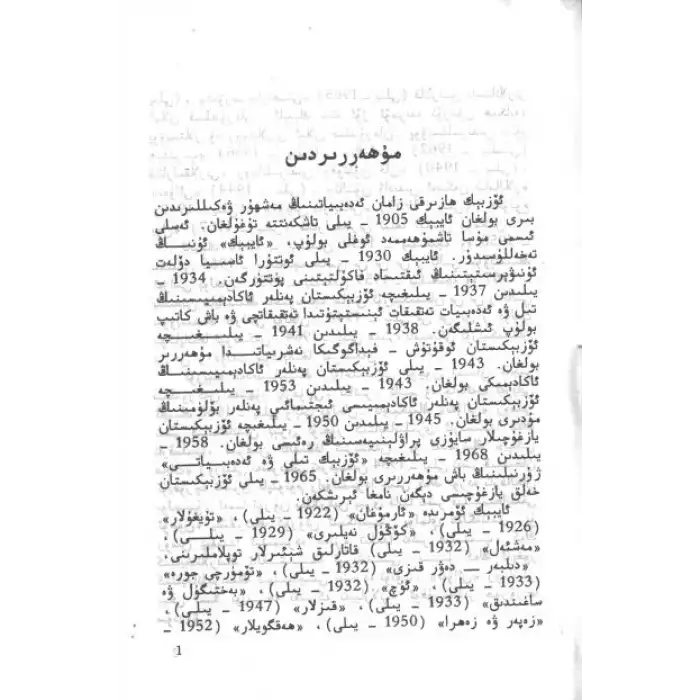 مۇھەررىردىن
ئۆزبېك ھازىرقى زامان ئەدەبىياتىنىڭ مەشھۇر ۋەكىللىرىدىن
بىرى بولغان ئايبېك 1905 ـ يىلى تاشكەنتتە تۇغۇلغان. ئەسلى
ئىسمى مۇسا تاشمۇھەممەد ئوغلى بولۇپ، «ئايبېك» ئۇنىڭ
تەخەللۇسىدۇر. ئايبېك 1930 ـ يىلى ئوتتۇرا ئاسىيا دۆلەت
ئۇنىۋېرسىتېتىنىڭ ئىقتىساد فاكۇلتېتىنى پۈتتۈرگەن. 1934 ـ
يىلىدىن 1937 ـ يىلىغىچە ئۆزبېكىستان پەنلەر ئاكادېمىيىسىنىڭ
تىل ۋە ئەدەبىيات تەتقىقات ئىنستىتۇتىدا تەتقىقاتچى ۋە باش كاتىپ
بولۇپ ئىشلىگەن. 1938 ـ يىلىدىن 1941 ـ يىلىغىچە
ئۆزبېكىستان ئوقۇتۇش ـ پېداگوگىكا نەشرىياتىدا مۇھەررىر
بولغان. 1943 ـ يىلى ئۆزبېكىستان پەنلەر ئاكادېمىيىسىنىڭ
ئاكادېمىكى بولغان. 1943 ـ يىلىدىن 1953 ـ يىلىغىچە
ئۆزبېكىستان پەنلەر ئاكادېمىيىسى ئىجتىمائىي پەنلەر بۆلۈمىنىڭ
مۇدىرى بولغان. 1945 ـ يىلىدىن 1950 ـ يىلىغىچە ئۆزبېكىستان
يازغۇچىلار سايۇزى پراۋلېنىيەسىنىڭ رەئىسى بولغان. 1958 ـ
يىلىدىن 1968 ـ يىلىغىچە «ئۆزبېك تىلى ۋە ئەدەبىياتى»
ژۇرنىلىنىڭ باش مۇھەررىرى بولغان. 1965 ـ يىلى ئۆزبېكىستان
خەلق يازغۇچىسى دېگەن نامغا ئېرىشكەن.
ئايبېك ئۆمرىدە «ئارمۇغان» (1922 ـ يىلى)، «تۇيغۇلار»
(1926 ـ يىلى)، «كۆڭۈل نەيلىرى» (1929 ـ يىلى)،
«مەشئەل» (1932 ـ يىلى) قاتارلىق شېئىرلار توپلاملىرىنى،
«دىلبەر — دەۋر قىزى» (1932 ـ يىلى)، «تۆمۈرچى جورە»
(1933 ـ يىلى)، «ئۆچ» (1932 ـ يىلى)، «بەختىگۈل ۋە
ساغىندىق» (1933 ـ يىلى)، «قىزلار» (1947 ـ يىلى)،
«زەپەر ۋە زەھرا» (1950 ـ يىلى)، «ھەقگويلار» (1952 ـ
1